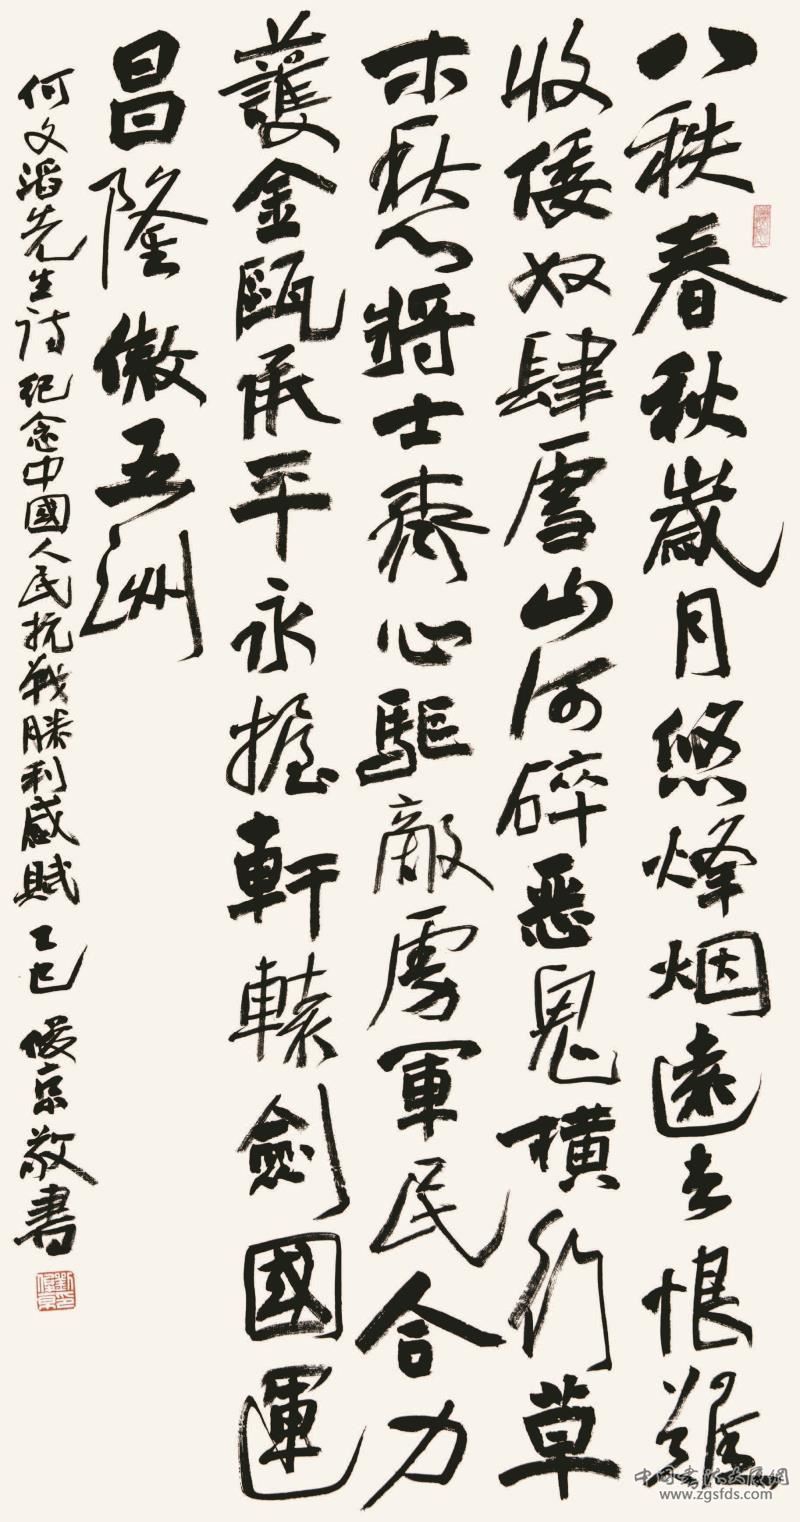 八秩春秋歲月悠烽烟遠去恨難
收倭奴肆虐山河碎惡鬼橫行草
木愁將士齊心驅敵虜軍民合力
護金甌承平永握軒轅劍國運
昌隆傲五洲
何文滔先生诗纪念中國人民抗戰勝利感賦 乙巳 俊京敬書
www.zgsfds.com